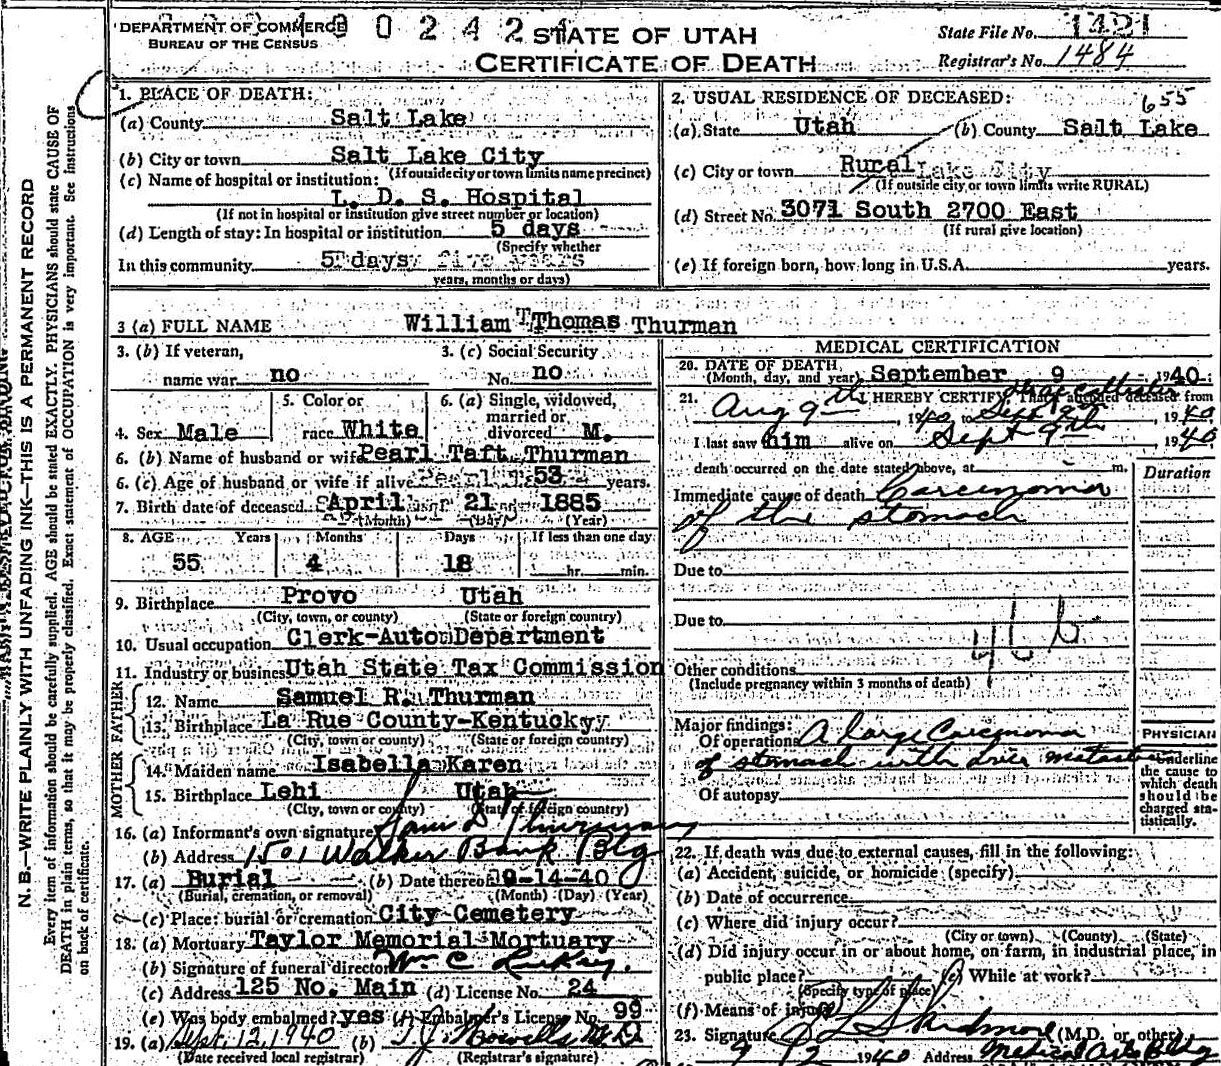 DEPARTMENT OF COMMERCE
BUREAU OF THE CENSUS
STATE OF UTAH
CERTIFICATE OF DEATH
State File No. 1421
Registrar's No. 1484
N. B.—WRITE PLAINLY WITH UNFADING INK—THIS IS A PERMANENT RECORD
Every item of information should be carefully supplied. AGE should be stated EXACTLY. PHYSICIANS should state CAUSE OF
DEATH in plain terms, so that it may be properly classified. Exact statement of OCCUPATION is very important. See instructions
on back of certificate.
1. PLACE OF DEATH:
(a) County Salt Lake
(b) City or town Salt Lake City
(If outside city or town limits name precinct)
(c) Name of hospital or institution:
L. D. S. Hospital
(If not in hospital or institution give street number or location)
(d) Length of stay: In hospital or institution 5 days
(Specify whether
In this community 5 days
years, months or days)
2. USUAL RESIDENCE OF DECEASED: 655
(a) State Utah (b) County Salt Lake
(c) City or town Rural Lake City
(If outside city or town limits write RURAL)
(d) Street No. 3071 South 2700 East
(If rural give location)
(e) If foreign born, how long in U.S.A. years.
3 (a) FULL NAME William Thomas Thurman
3. (b) If veteran, 3. (c) Social Security
name war no No. no
5. Color or 6. (a) Single, widowed,
married or
4. Sex Male race White divorced M.
6. (b) Name of husband or wife Pearl Taft Thurman
6. (c) Age of husband or wife if alive 53 years.
7. Birth date of deceased April 21 1885
(Month) (Day) (Year)
8. AGE Years Months Days If less than one day
55 4 18 hr. min.
9. Birthplace Provo Utah
(City, town, or county) (State or foreign country)
10. Usual occupation Clerk-Auto Department
11. Industry or business Utah State Tax Commission
FATHER
12. Name Samuel R. Thurman
13. Birthplace La Rue County-Kentucky
(City, town or county) (State or foreign country)
MOTHER
14. Maiden name Isabella Karen
15. Birthplace Lehi Utah
(City, town or county) (State or foreign country)
16. (a) Informant's own signature Sam D Thurman
(b) Address 1501 Walker Bank Blg
17. (a) Burial (b) Date thereof 9-14-40
(Burial, cremation, or removal) (Month) (Day) (Year)
(c) Place: burial or cremation City Cemetery
18. (a) Mortuary Taylor Memorial Mortuary
(b) Signature of funeral director Wm C
(c) Address 125 No. Main (d) License No. 24
(e) Was body embalmed? yes (f) Embalmer's License No. 99
19. (a) Sept. 12, 1940 (b) T.J. Howells M.D.
(Date received local registrar) (Registrar's signature)
MEDICAL CERTIFICATION
20. DATE OF DEATH
(Month, day, and year) September 9 1940
21. I HEREBY CERTIFY, That I attended deceased from
Aug 9th 1940 to Sept 9th 1940
I last saw him alive on Sept 9th 1940
death occurred on the date stated above, at m.
Duration
Immediate cause of death Carcinoma
of the stomach
Due to
Due to
46 b
Other conditions
(Include pregnancy within 3 months of death)
Major findings:
Of operations A large Carcinoma
of stomach with
Of autopsy
PHYSICIAN
Underline
the cause to
which death
should be
charged sta-
tistically.
22. If death was due to external causes, fill in the following:
(a) Accident, suicide, or homicide (specify)
(b) Date of occurrence
(c) Where did injury occur?
(City or town) (County) (State)
(d) Did injury occur in or about home, on farm, in industrial place, in
public place? While at work?
(Specify type of place)
(f) Means of injury
23. Signature Skidmore (M.D. or other)
9 12 1940 Address Medical Arts Bldg